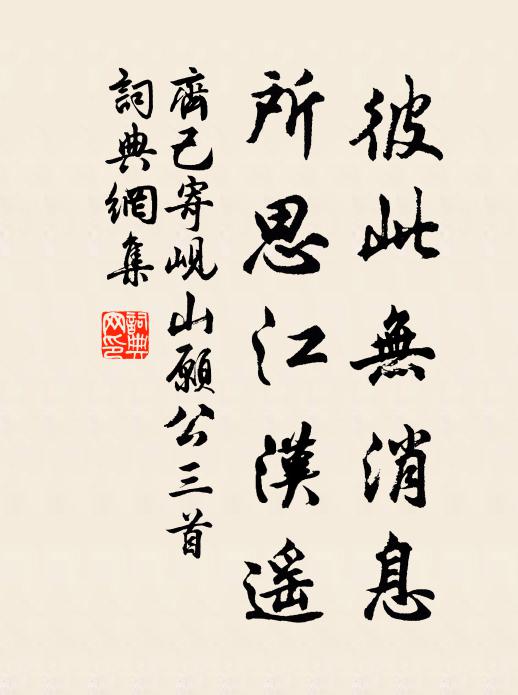 彼此無消息
所思江漢遥
齊己寄峴山願公三首
詞典網集
詞典
网印